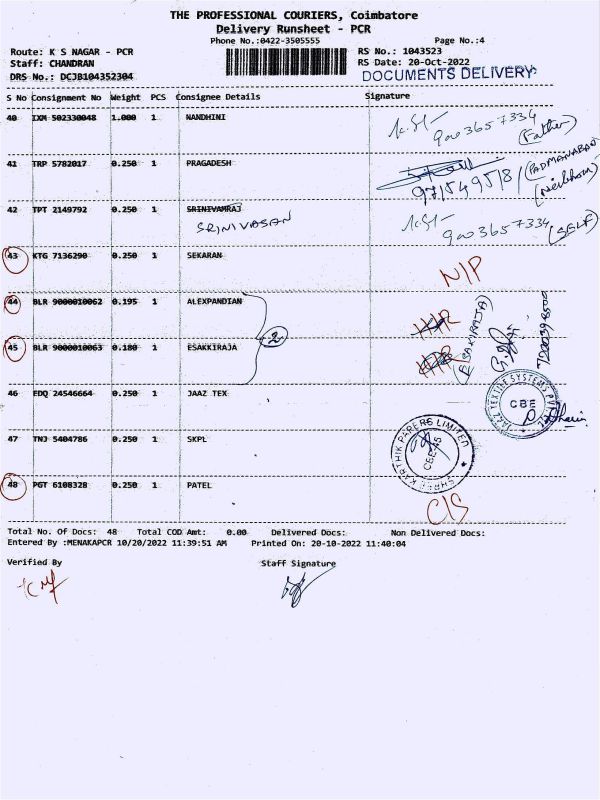 THE PROFESSIONAL COURIERS, Coimbatore
Delivery Runsheet - PCR
Phone No.:0422-3505555 Page No.:4
Route: K S NAGAR - PCR RS No.: 1043523
Staff: CHANDRAN RS Date: 20-Oct-2022
DRS No.: DCJB104352304 DOCUMENTS DELIVERY
S No Consignment No Weight PCS Consignee Details Signature
40 IXM 502330048 1.000 1 NANDHINI
9003657334 (Father)
41 TRP 5782017 0.250 1 PRAGADESH
(PADMANABAN
42 TPT 2149792 0.250 1 SRINIVAMRAJ
SRINIVASAN
9003657334 (SELF)
43 KTG 7136290 0.250 1 SEKARAN N/P
44 BLR 9000010062 0.195 1 ALEXPANDIAN
2
45 BLR 9000010063 0.180 1 ESAKKIRAJA
46 EDQ 24546664 0.250 1 JAAZ TEX
JAAZ TEXTILE SYSTEMS PVT
CBE
47 TNJ 5404786 0.250 1 SKPL
SHREE KARTHIK PAPERS LIMITED
CBE-45
48 PGT 6108328 0.250 1 PATEL C/S
Total No. Of Docs: 48 Total COD Amt: 0.00 Delivered Docs: Non Delivered Docs:
Entered By :MENAKAPCR 10/20/2022 11:39:51 AM Printed On: 20-10-2022 11:40:04
Verified By Staff Signature